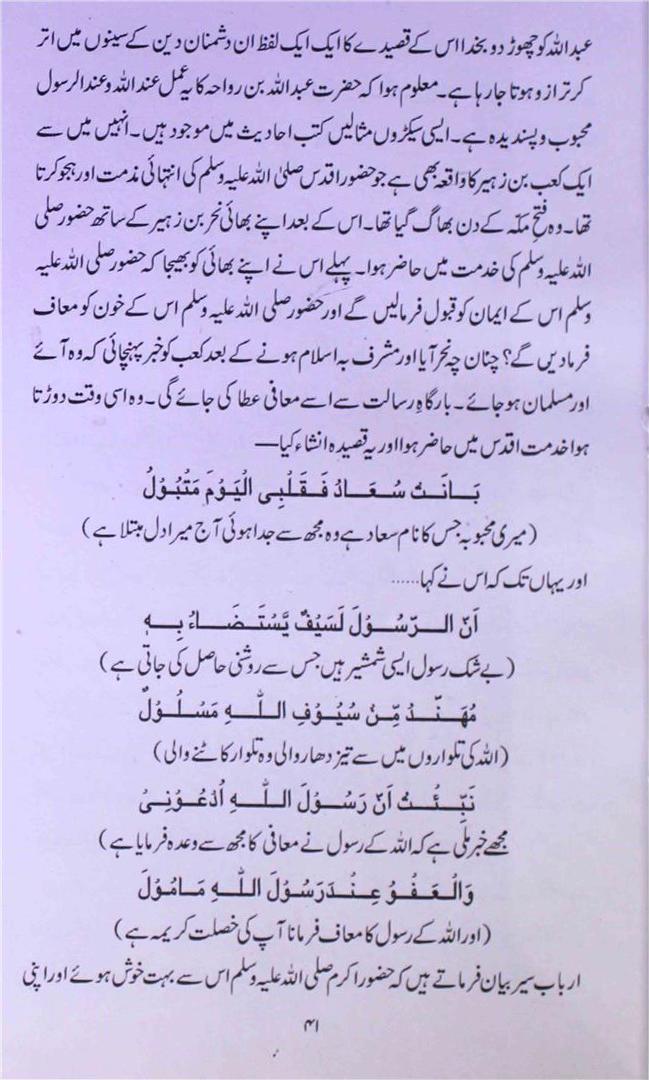 عبداللہ کو چھوڑ دو بخدا اس کے قصیدے کا ایک ایک لفظ ان دشمنان دین کے سینوں میں اتر
کر ترازو ہوتا جا رہا ہے۔ معلوم ہوا کہ حضرت عبداللہ بن رواحہ کا یہ عمل عنداللہ و عندالرسول
محبوب و پسندیدہ ہے۔ ایسی سیکڑوں مثالیں کتب احادیث میں موجود ہیں۔ انہیں میں سے
ایک کعب بن زہیر کا واقعہ بھی ہے جو حضور اقدس صلی اللہ علیہ وسلم کی انتہائی مذمت اور ہجو کرتا
تھا۔ وہ فتح مکہ کے دن بھاگ گیا تھا۔ اس کے بعد اپنے بھائی نحر بن زہیر کے ساتھ حضور صلی
اللہ علیہ وسلم کی خدمت میں حاضر ہوا۔ پہلے اس نے اپنے بھائی کو بھیجا کہ حضور صلی اللہ علیہ
وسلم اس کے ایمان کو قبول فرمالیں گے اور حضور صلی اللہ علیہ وسلم اس کے خون کو معاف
فرمادیں گے؟ چنان چہ نحر آیا اور مشرف بہ اسلام ہونے کے بعد کعب کو خبر پہنچائی کہ وہ آئے
اور مسلمان ہو جائے۔ بارگاہِ رسالت سے اسے معافی عطا کی جائے گی۔ وہ اسی وقت دوڑتا
ہوا خدمت اقدس میں حاضر ہوا اور یہ قصیدہ انشاء کیا—
بَانَتْ سُعَادُ فَقَلْبِی الْیَوْمَ مَتْبُوْلُ
(میری محبوبہ جس کا نام سعاد ہے وہ مجھ سے جدا ہوئی آج میرا دل مبتلا ہے)
اور یہاں تک کہ اس نے کہا......
اَنّ الرّسُوْلَ لَسَیْفٌ یَّسْتَضَاءُ بِہٖ
(بے شک رسول ایسی شمشیر ہیں جس سے روشنی حاصل کی جاتی ہے)
مُهَنَّدُ مِّنْ سُیُوْفِ اللّٰہِ مَسْلُوْلٌ
(اللہ کی تلواروں میں سے تیز دھار والی وہ تلوار کاٹنے والی)
نَبِّئْتُ اَنّ رَسُوْلَ اللّٰہِ اُدْعُوْنِیْ
مجھے خبر ملی ہے کہ اللہ کے رسول نے معافی کا مجھ سے وعدہ فرمایا ہے)
وَالْعَفْوُ عِنْدَ رَسُوْلَ اللّٰہِ مَامُوْلَ
(اور اللہ کے رسول کا معاف فرمانا آپ کی خصلت کریمہ ہے)
ارباب سیر بیان فرماتے ہیں کہ حضور اکرم صلی اللہ علیہ وسلم اس سے بہت خوش ہوئے اور اپنی
۴۱